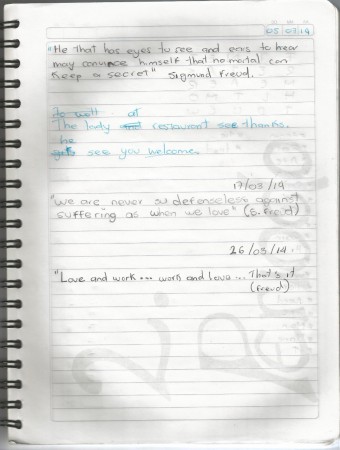 05/03/14
"He that has eyes to see and ears to hear
may convince himself that no mortal can
keep a secret" Sigmund Freud.
to well at
The lady restaurant see thanks.
he
see you welcome.
17/03/14
"We are never so defenseless against
suffering as when we love" (S. Freud)
26/03/14
"Love and work... work and love... That's it
(Freud)